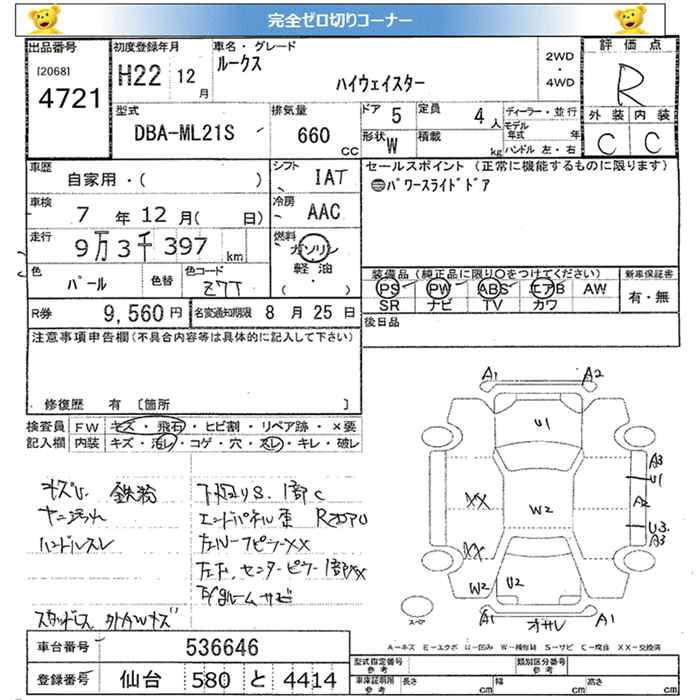 完全ゼロ切りコーナー
出品番号 初度登録年月 車名・グレード 評価点
[2068] 4721 H22 12月 ルークス ハイウェイスター 2WD・4WD R
型式 排気量 ドア 5 定員 4人 ディーラー・並行 外装 内装
DBA-ML21S 660CC 形状 W 積載 kg モデル年式 年 ハンドル 左・右 C C
車歴 シフト セールスポイント (正常に機能するものに限ります)
自家用・( ) IAT パワースライドドア
車検 7年12月( 日) 冷房 AAC
走行 9万3千397km 燃料 ガソリン 軽油 ( ・ )
色 パール 色替 色コード Z7T
装備品(純正品に限り○をつけてください) 新車保証書
PS PW ABS エアB AW 有・無
SR ナビ TV カワ
R券 9,560円 名変通知期限 8月25日 後日品
注意事項申告欄(不具合内容等は具体的に記入して下さい)
修復歴 有 [箇所 ]
検査員 FW キズ・飛石・ヒビ割・リペア跡・×要
記入欄 内装 キズ・汚レ・コゲ・穴・スレ・キレ・破レ
鉄粉 下回りS. 1部C
エンドパネル歪
ハンドルスレ
A1 A2
U1
A3
U1
A2
XX W2 U3
A3
XX
W2 U2
A1 オサレ A1
スペア
A-キズ E-エクボ U-凹み W-補修跡 S-サビ C-腐食 XX-交換済
車台番号 536646
登録番号 仙台 580 と 4414
型式指定番号 参考 類別区分番号 参考
車庫証明用 参考 長さ cm 幅 cm 高さ cm